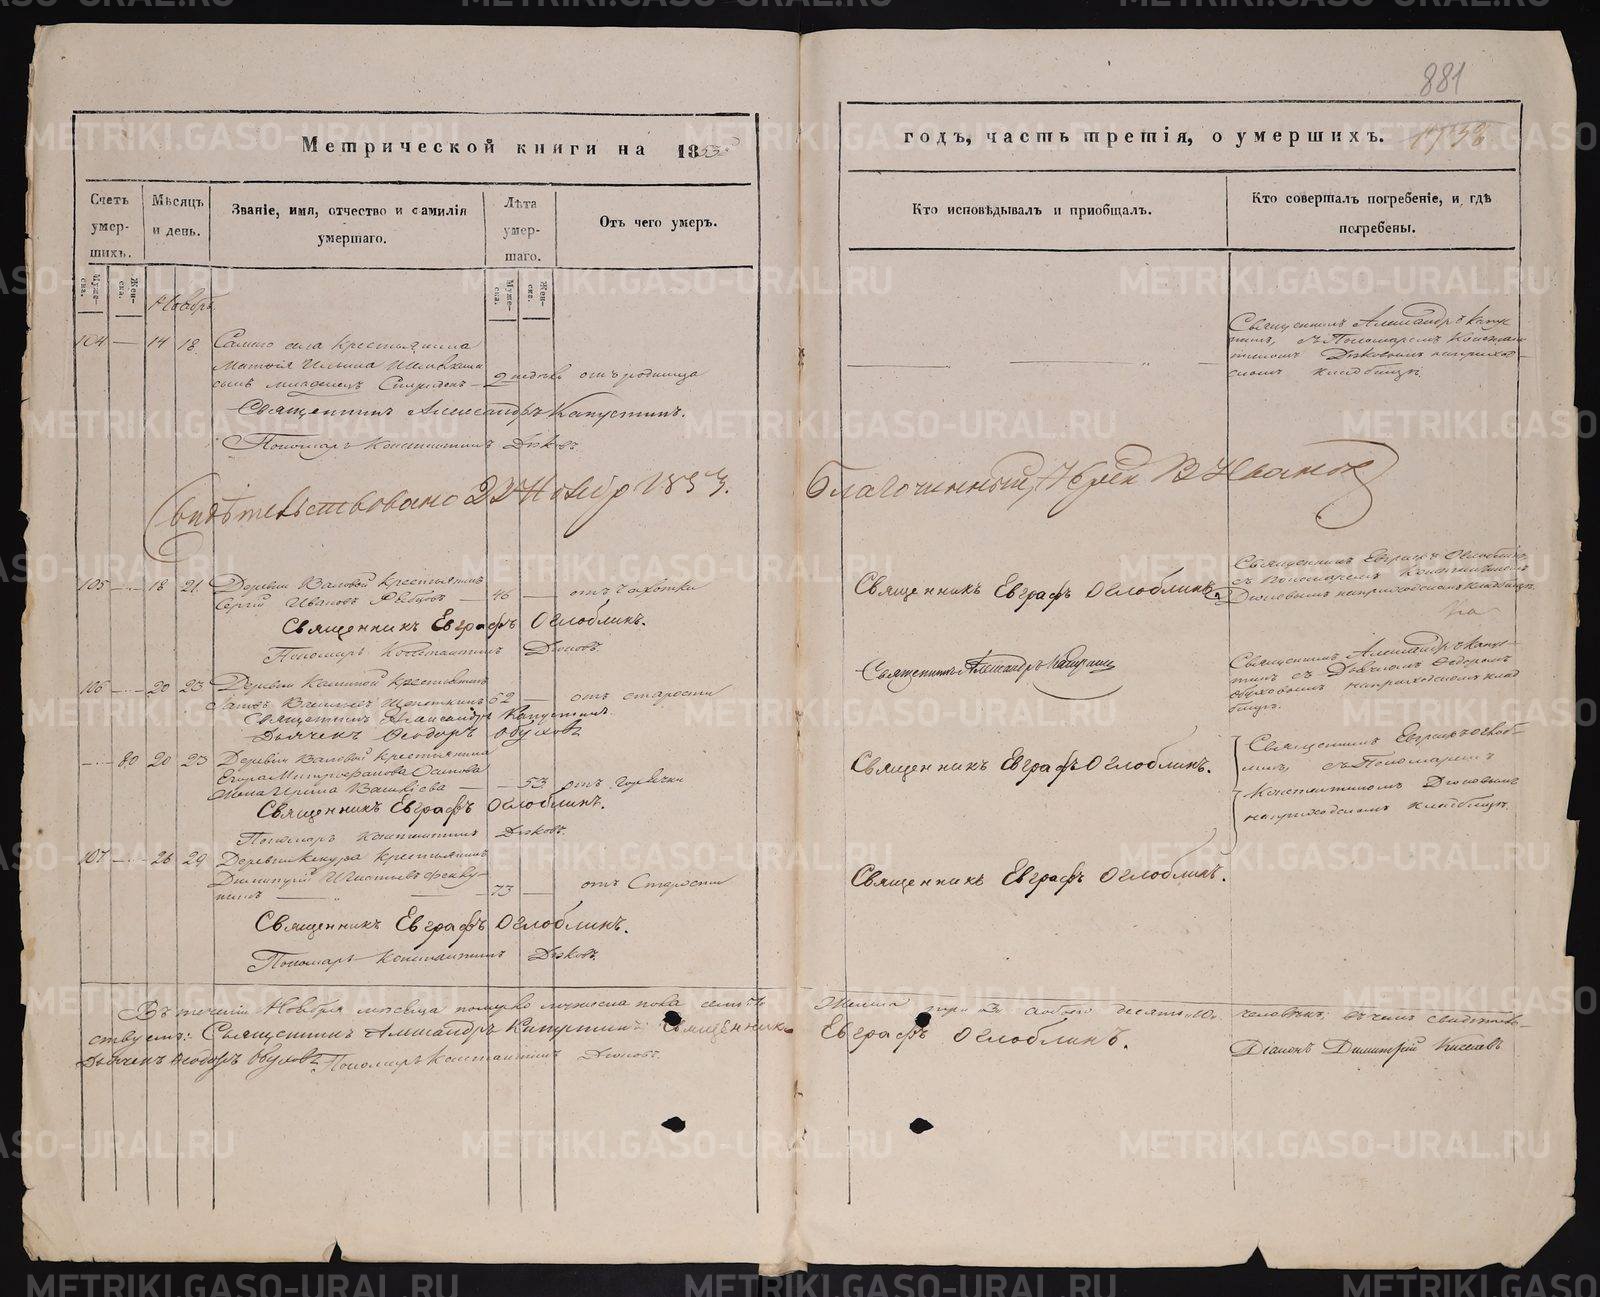 881
Метрической книги на 1853
годъ, часть третія, о умершихъ. 1738
Счетъ умер-шихъ.
Мѣсяцъ и день.
Званіе, имя, отчество и фамилія умершаго.
Лѣта умер-шаго.
Отъ чего умеръ.
Кто исповѣдывалъ и приобщалъ.
Кто совершалъ погребеніе, и гдѣ погребены.
Муже-ска.
Жен-ска.
Муже-ска.
Жен-ска.
Ноябрь
104 — 14 18
Самаго села крестьянина
Матвія Ильина
сынъ младенецъ Спиридонъ — 2 недѣль отъ родимца
Священникъ Александръ Капустинъ.
Пономарь Константинъ Дьяковъ.
Священникъ Александръ Капус-
тинъ, съ Пономаремъ Констан-
тиномъ Дьяковымъ на приход-
скомъ кладбищѣ.
Свидѣтельствовано 22 Ноября 1853.
Благочинный, Іерей В Ивановъ
105 — 18 21
Деревни Валовой крестьянинъ
Сергій Ивановъ — 46 — отъ чахотки
Священникъ Евграфъ Оглоблинъ.
Пономарь Константинъ Дьяковъ.
Священникъ Евграфъ Оглоблинъ
Священникъ Евграфъ Оглоблинъ
съ Пономаремъ Константиномъ
Дьяковымъ на приходскомъ кладбищѣ.
106 — 20 23
Деревни крестьянинъ
Васильевъ 62 — отъ старости
Священникъ Александръ Капустинъ
Дьячекъ Ѳеодоръ Обуховъ
Священникъ Александръ Капустинъ
Священникъ Александръ Капус-
тинъ съ Дьячкомъ Ѳедоромъ
Обуховымъ на приходскомъ клад-
бищѣ.
— 80 20 23
Деревни Валовой крестьянина
Егора Митрофанова Осипова
жена Ирина — 53 отъ горячки
Священникъ Евграфъ Оглоблинъ.
Пономарь Константинъ Дьяковъ.
Священникъ Евграфъ Оглоблинъ.
Священникъ Евграфъ Оглоб-
линъ, съ Пономаремъ
Константиномъ Дьяковымъ
на приходскомъ кладбищѣ.
107 — 26 29
Деревни крестьянинъ
Димитрій
— 73 — отъ старости
Священникъ Евграфъ Оглоблинъ.
Пономарь Константинъ Дьяковъ.
Священникъ Евграфъ Оглоблинъ.
Въ теченіи Ноября мѣсяца померло мужеска пола семь 7
Женска три 3 а обоего десять 10 человѣкъ; въ чемъ свидѣтель-
ствуемъ: Священникъ Александръ Капустинъ Священникъ
Евграфъ Оглоблинъ. Діаконъ Димитрій Киселевъ
Дьячекъ Ѳеодоръ Обуховъ Пономарь Константинъ Дьяковъ.
METRIKI.GASO-URAL.RU